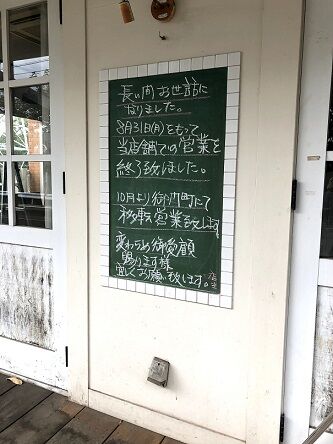 長い間お世話に
なりました。
8月31日(月)をもって
当店舗での営業を
終了致しました。
10月より衛門町にて
移転営業致します
変わらぬ御愛顧
賜ります様
宜しくお願い致します。
店主